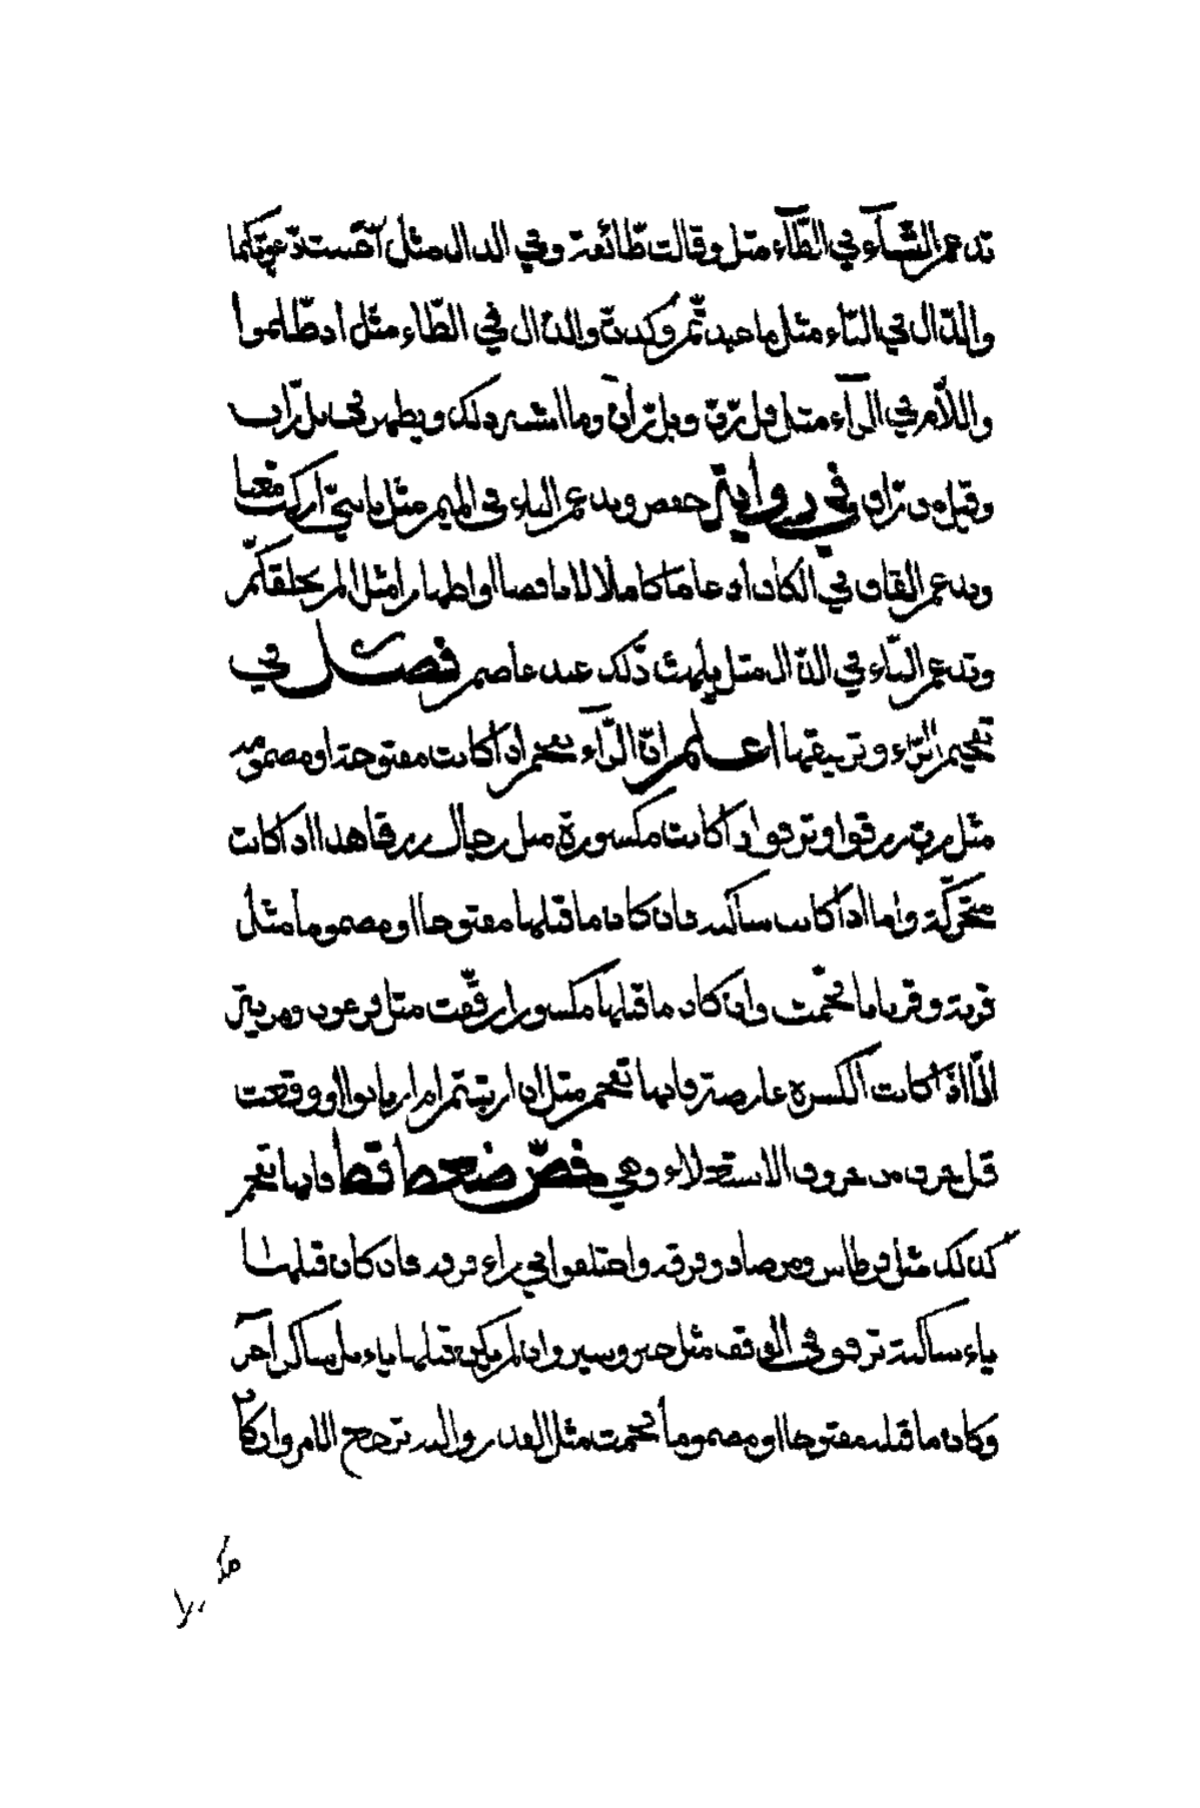 تدغم التّاء في الطّآء مثل وقالت طّائفة وفي الدال مثل اثقلت دّعوتكما
والدّال في التاء مثل ما عبدتّم وكدتّ والذال في الظّاء مثل اذ ظّلموا
واللّام في الرّآء مثل قل رّبّ وبل رّان وما اشبه ذلك ويظهر في بل ران
وقيل من راق في رواية حفص ويدغم الباء في الميم مثل يا بنيّ اركب معنا
ويدغم القاف في الكاف ادغاما كاملا لا ناقصا او اظهارا مثل الم نخلقكّم
وتدغم الثّاء في الذال مثل يلهث ذّلك عند عاصم فصل في
تفخيم الرّاء وترقيقها اعلم انّ الرّآء تفخم اذا كانت مفتوحة او مضمومة
مثل ربّ رزقوا وترقق اذا كانت مكسورة مثل رجال رزقا هذا اذا كانت
متحرّكة واما اذا كانت ساكنة فان كان ما قبلها مفتوحا او مضموما مثل
قرية وقربانا فخّمت وان كان ما قبلها مكسورا رقّقت مثل فرعون ومرية
الّا اذا كانت الكسرة عارضة فانها تفخم مثل ان ارتبتم ام ارتابوا او وقعت
قبل حرف من حروف الاستعلاء وهي خصّ ضغط قظ فانها تفخم
كذلك مثل قرطاس ومرصاد وفرقة واختلفوا في راء فرق فان كان قبلها
ياء ساكنة ترقق في الوقف مثل خير وسير وان لم يكن قبلها ياء بل ساكن آخر
وكان ما قبله مفتوحا او مضموما فخمت مثل القدر واليه ترجع الامر وان كان